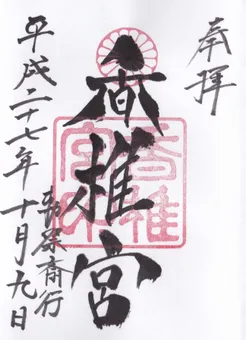 奉拝
香椎宮
勅祭斎行
平成二十七年十月九日
香椎宮印